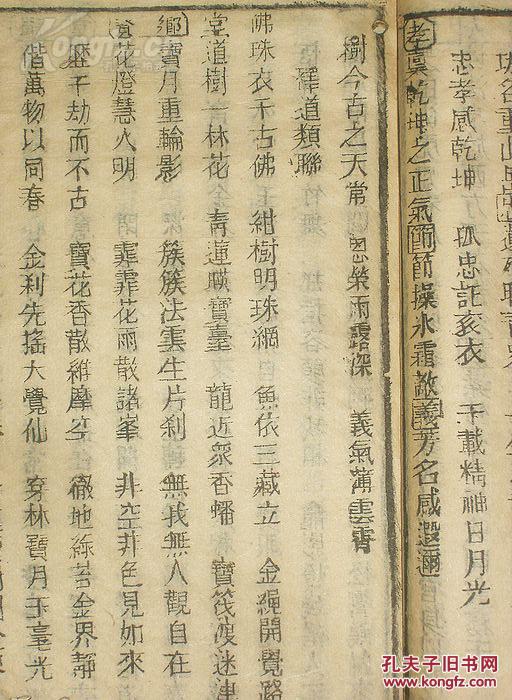 忠孝感乾坤 孤忠託袞衣 千載精神日月光
孝稟乾坤之正氣 節操氷霜 義芳名咸遐邇
樹今古之天常 恩榮雨露深 義氣薄雲霄
釋道類聯
佛珠衣千古佛 紺樹明珠網 魚依三藏立 金繩開覺路
堂道樹一林花 青蓮暎寶臺 龍近衆香蟠 寶筏渡迷津
寶月重輪影 簇簇法雲生片刹 無我無人觀自在
花燈慧火明 霏霏花雨散諸峯 非空非色見如來
歷千劫而不古 寶花香散維摩空 徹地綠苔金界靜
偕萬物以同春 金利先搖大覺仙 穿林寶月玉毫光
孔夫子旧书网
www.kongfz.com